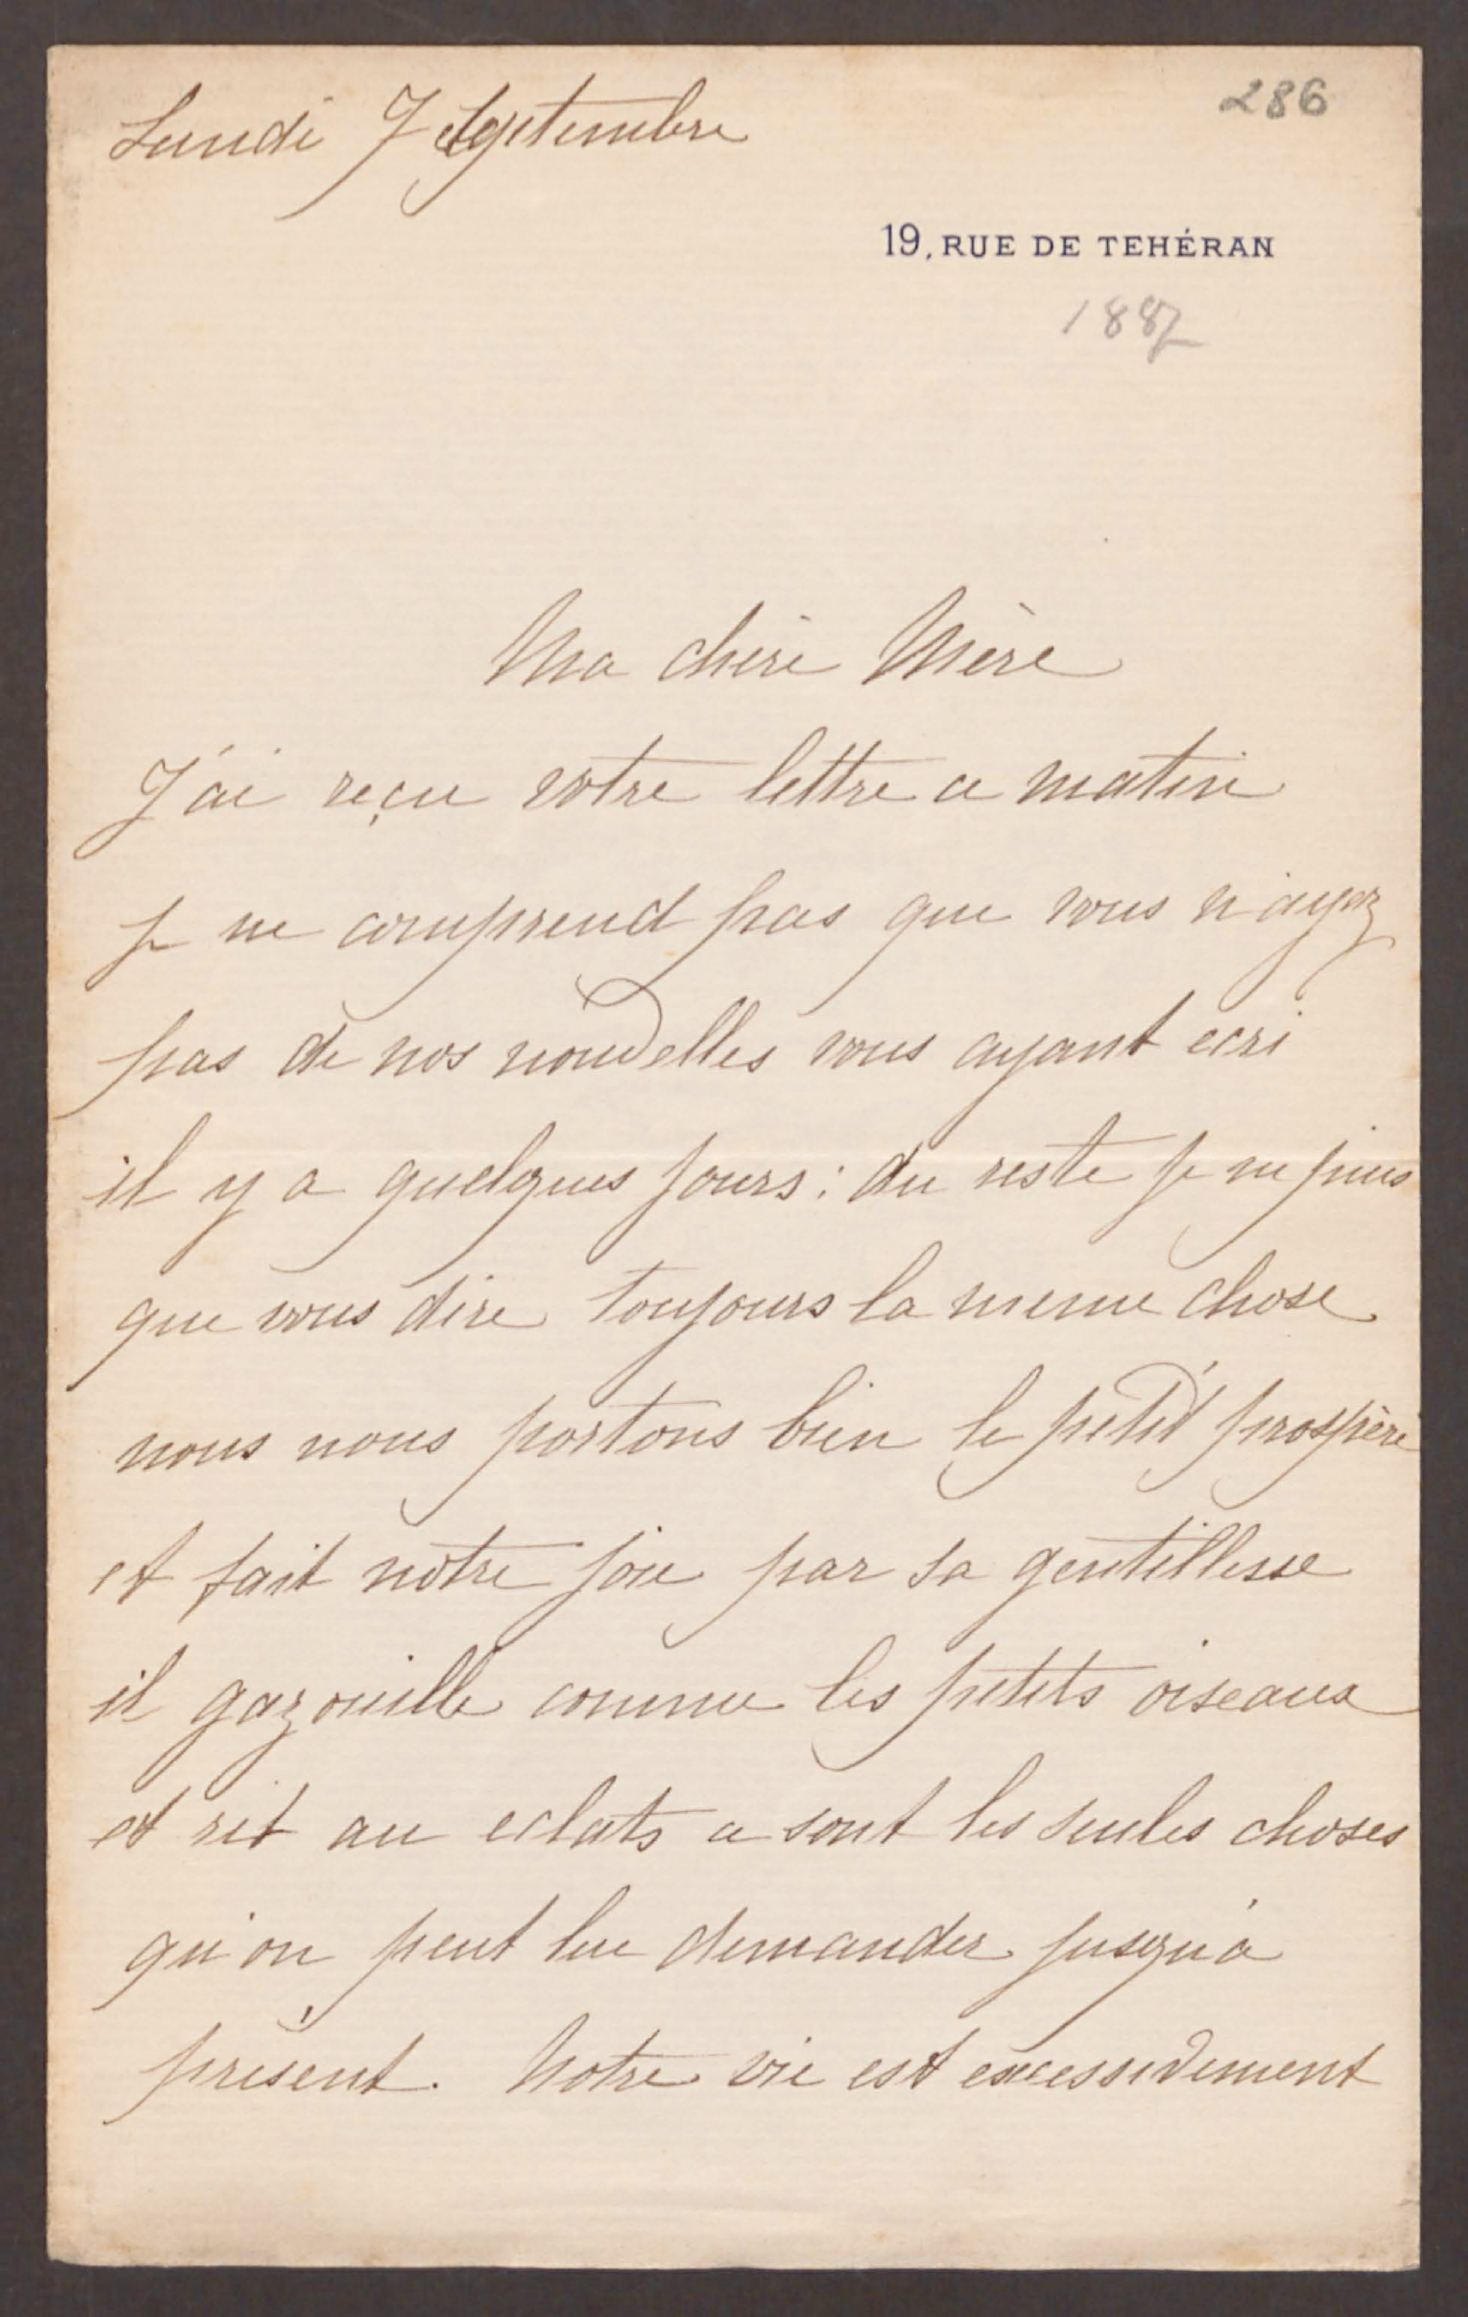 Lundi 7 Septembre
286
19, RUE DE TEHÉRAN
1887
Ma chère Mère
J'ai reçu votre lettre ce matin
je ne comprend pas que vous n'ayez
pas de nos nouvelles vous ayant ecri
il y a quelques jours : du reste je ne puis
que vous dire toujours la meme chose
nous nous portons bien le petit prospère
et fait notre joie par sa gentillesse
il gazouille comme les petits oiseaux
et rit au eclats ce sont les seules choses
qu'on peut lui demander jusqu'à
présent. Notre vie est excessivement